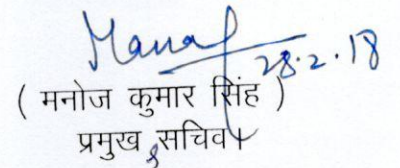 Manoj
28.2.18
( मनोज कुमार सिंह )
प्रमुख सचिव।